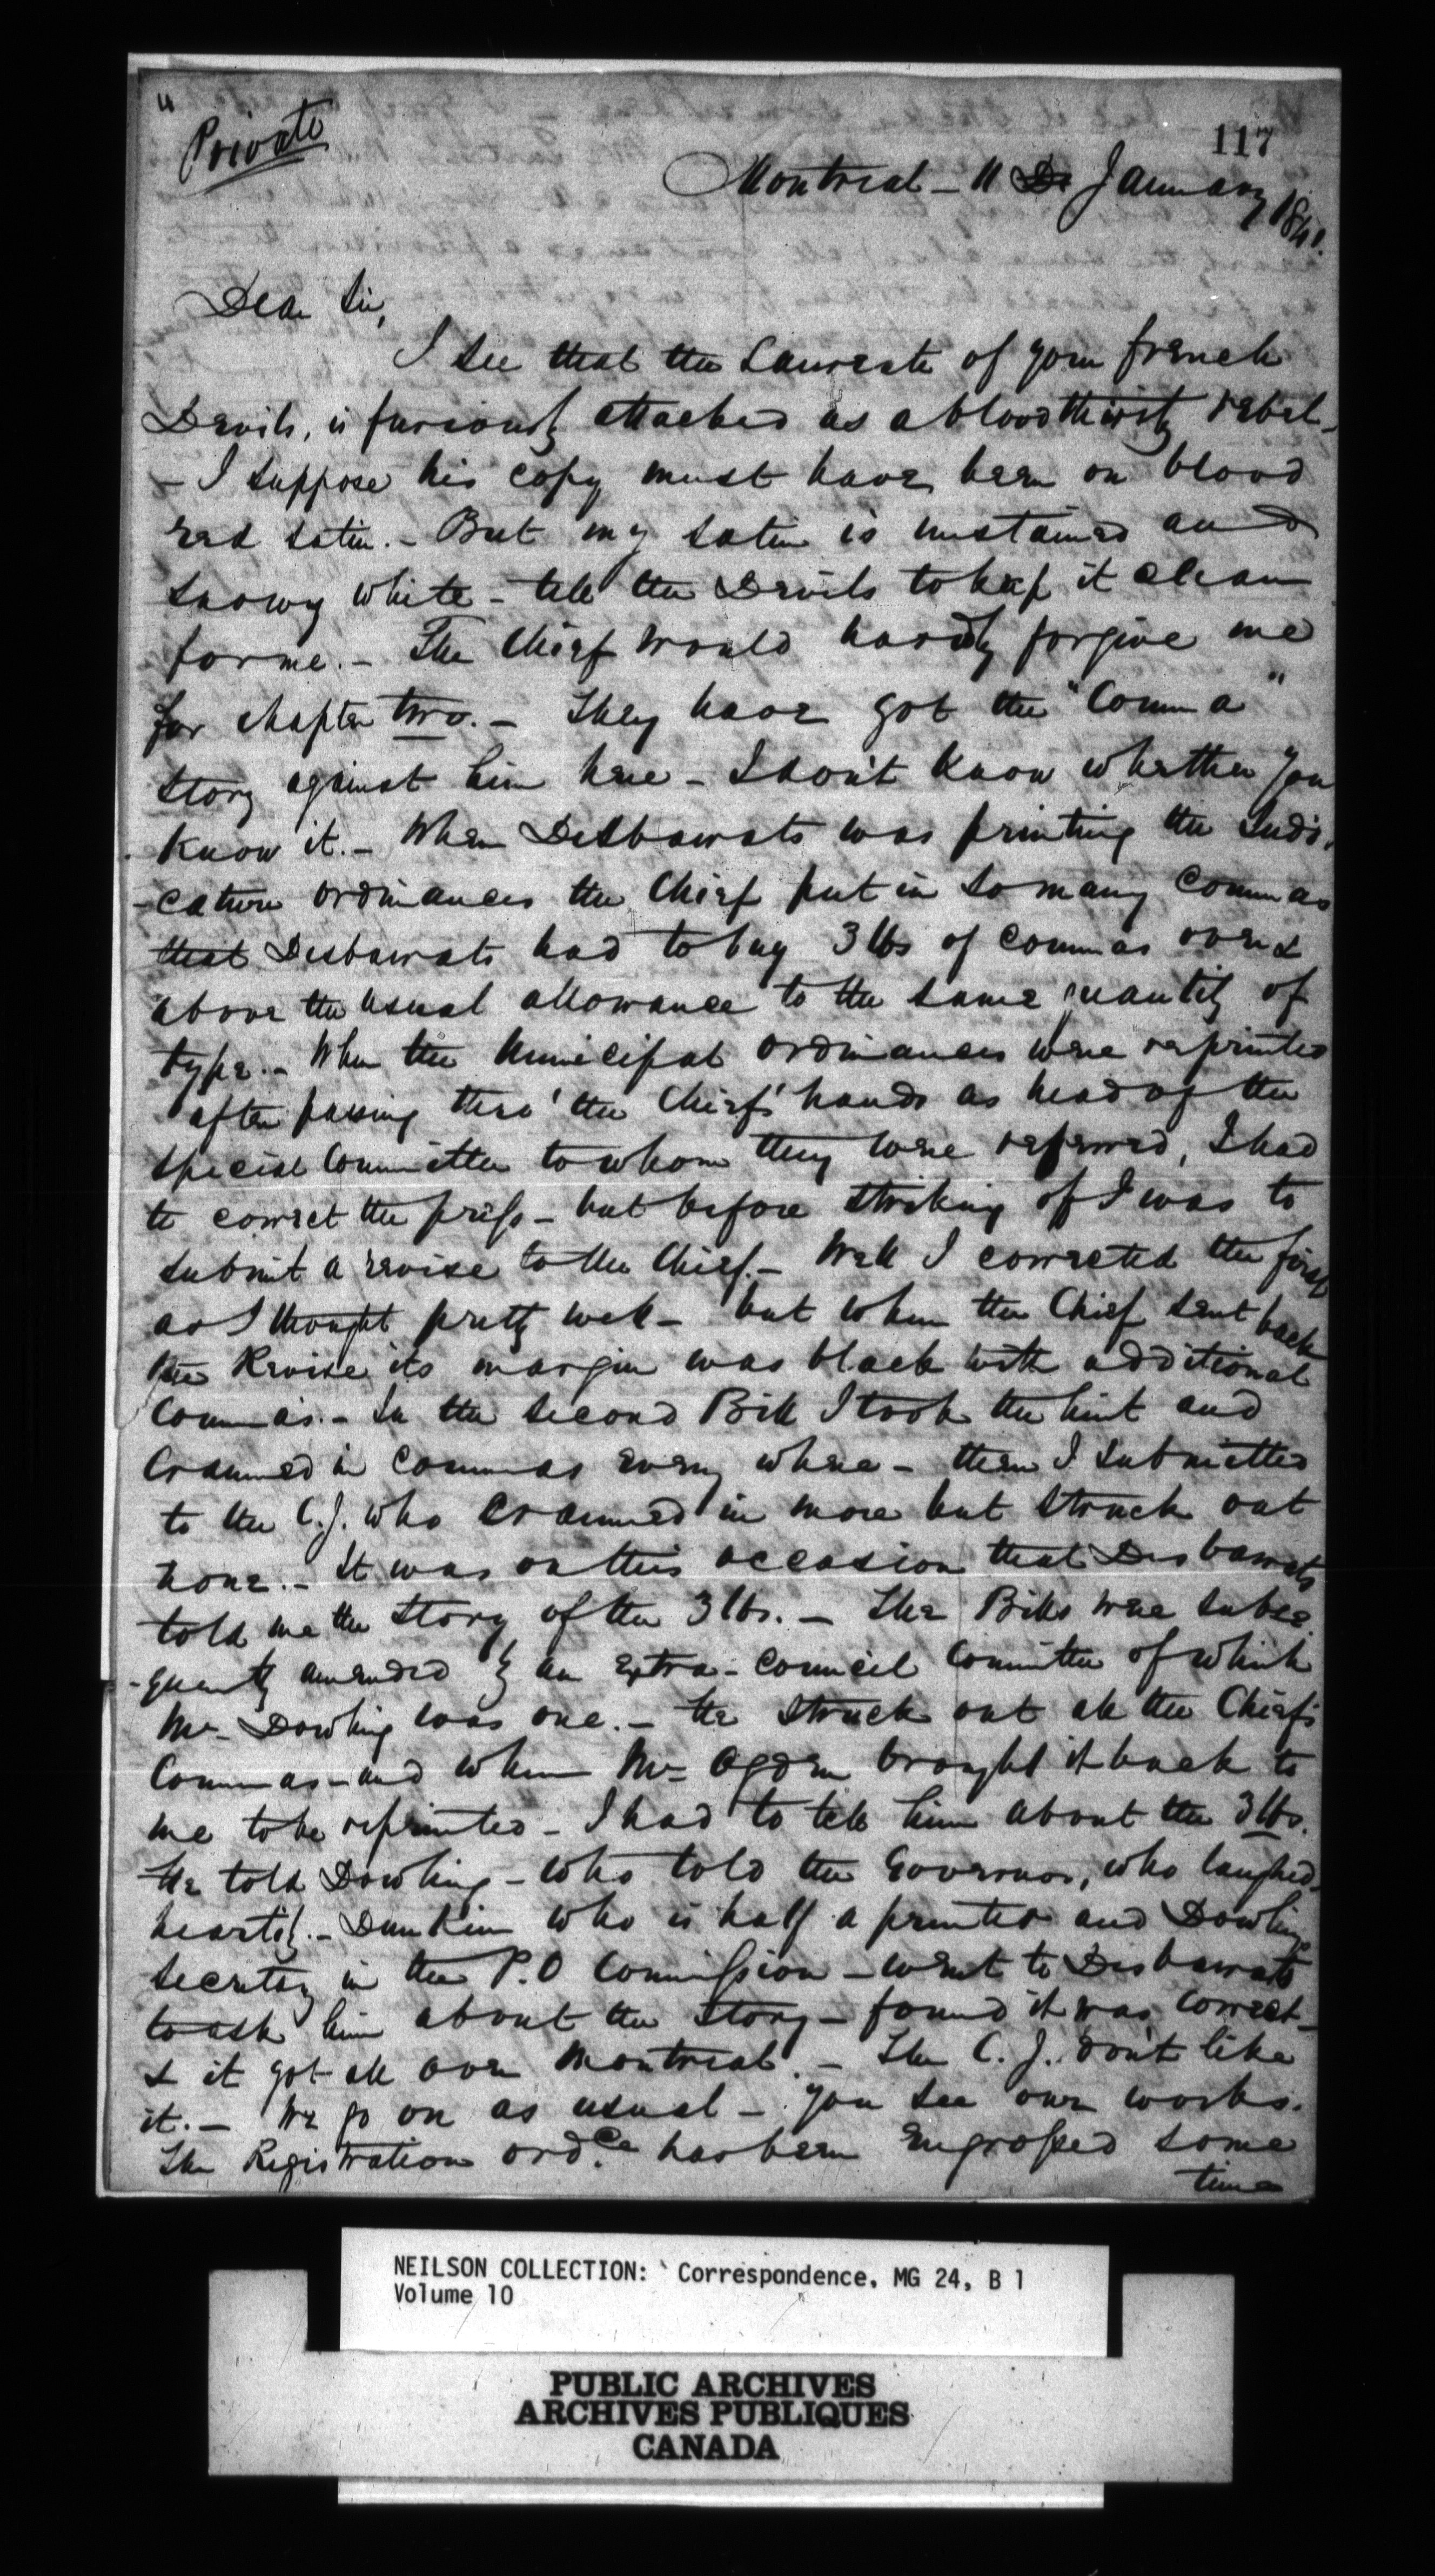 Private
117
Montreal - 11 January 1841.
Dear Sir,
I see that the Laureate of your french
Devils, is furiously attacked as a bloodthirsty rebel -
- I suppose his copy must have been on blood
red satin. - But my satin is unstained and
snowy white - tell the Devils to keep it clean
for me. - The Chief would hardly forgive me
for chapter two. - They have got the "Comma"
story against him here - I don't know whether you
know it. - When Desbarats was printing the Judi-
-cature ordinances the Chief put in so many Commas
that Desbarats had to buy 3 lbs of Commas over &
above the usual allowance to the same quantity of
type. - When the Municipal ordinances were reprinted
after passing thro' the Chief's hands as head of the
special Committee to whom they were referred, I had
to correct the press - but before striking off I was to
submit a revise to the Chief. - Well I corrected the first
as I thought pretty well - but when the Chief sent back
the Revise its margin was black with additional
Commas. - In the second Bill I took the hint and
crammed in Commas every where - then I submitted
to the C.J. who crammed in more but struck out
none. - It was on this occasion that Desbarats
told me the story of the 3 lbs. - The Bills were subse-
-quently amended by an extra-Council Committee of which
Mr Dowling was one. - He struck out all the Chief's
Commas - and when Mr Ogden brought it back to
me to be reprinted - I had to tell him about the 3 lbs.
He told Dowling - who told the Governor, who laughed
heartily. - Dunkin who is half a printer and Dowling's
Secretary in the P.O Commission - went to Desbarats
to ask him about the story - found it was correct -
& it got all over Montreal. - The C.J. don't like
it. - We go on as usual - you see our works.
The Registration ordce. has been engrossed some
time
NEILSON COLLECTION: Correspondence, MG 24, B 1
Volume 10
PUBLIC ARCHIVES
ARCHIVES PUBLIQUES
CANADA